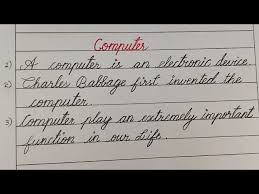 Computer
1) A computer is an electronic device.
2) Charles Babbage first invented the
computer.
3) Computer play an extremely important
function in our life.